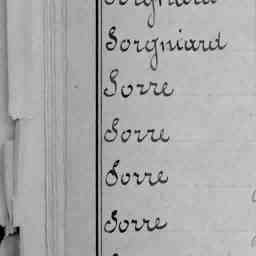 Sorgniard
Sorgniard
Sorre
Sorre
Sorre
Sorre